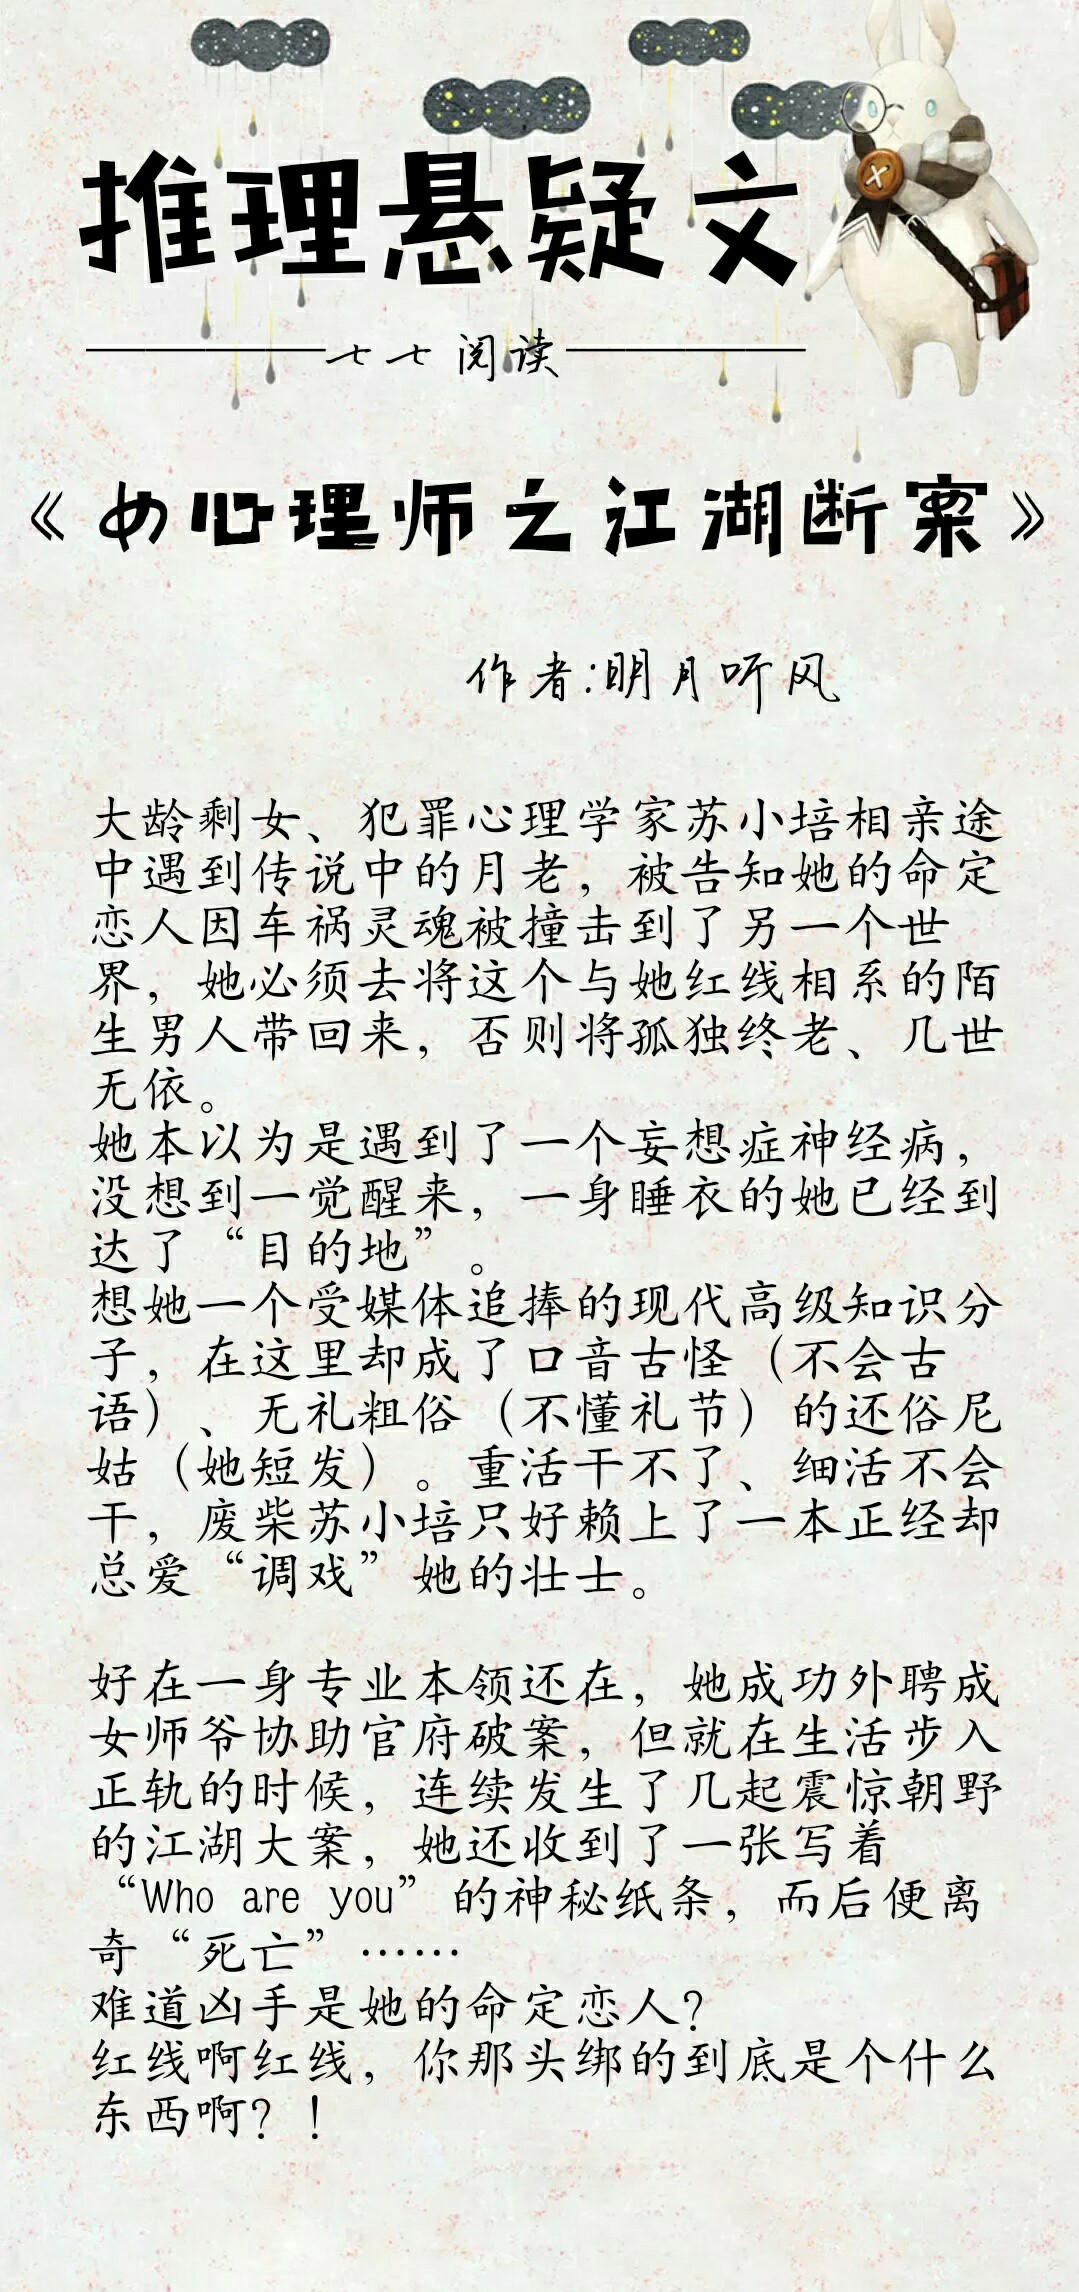 推理悬疑文
七七阅读
《女心理师之江湖断案》
作者:明月听风
大龄剩女、犯罪心理学家苏小培相亲途
中遇到传说中的月老，被告知她的命定
恋人因车祸灵魂被撞击到了另一个世
界，她必须去将这个与她红线相系的陌
生男人带回来，否则将孤独终老、几世
无依。
她本以为是遇到了一个妄想症神经病，
没想到一觉醒来，一身睡衣的她已经到
达了“目的地”。
想她一个受媒体追捧的现代高级知识分
子，在这里却成了口音古怪（不会古
语）、无礼粗俗（不懂礼节）的还俗尼
姑（她短发）。重活干不了、细活不会
干，废柴苏小培只好赖上了一本正经却
总爱“调戏”她的壮士。
好在一身专业本领还在，她成功外聘成
女师爷协助官府破案，但就在生活步入
正轨的时候，连续发生了几起震惊朝野
的江湖大案，她还收到了一张写着
“Who are you”的神秘纸条，而后便离
奇“死亡”……
难道凶手是她的命定恋人？
红线啊红线，你那头绑的到底是个什么
东西啊？！